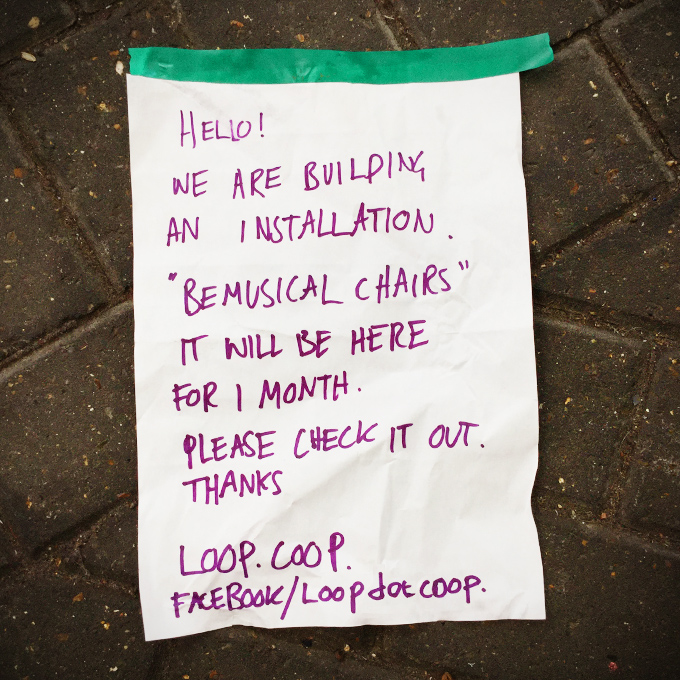 HELLO!
WE ARE BUILDING
AN INSTALLATION.
"BEMUSICAL CHAIRS"
IT WILL BE HERE
FOR 1 MONTH.
PLEASE CHECK IT OUT.
THANKS
LOOP.COOP.
FACEBOOK/LOOPdotcoop.